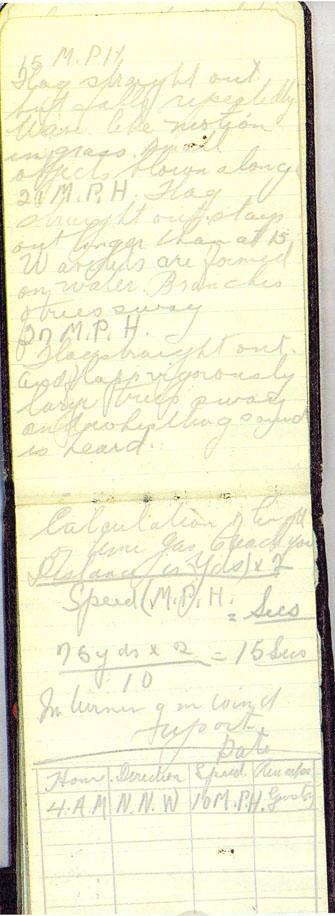 15 M.P.H
Flag straight out
but falls repeatedly
Wave like motion
in grass. Small
objects blown along
21 M.P.H. Flag
straight out stays
out longer than at 15
Wavelets are formed
on water. Branches
of trees sway
27 M.P.H.
Flag straight out
and flaps vigorously
large trees sway
and whistling sound
is heard.
Calculation of length
of time gas
Distance in Yds) x 2
Speed (M.P.H. = Secs
75 yds x 2 = 15 Secs
10
wind
report.
Date
Hour Direction Speed Remarks
4. A.M N.N.W 10 M.P.H. Gusty